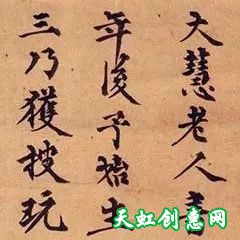 大慧老人書
年後予始生
三乃獲披玩
天虹创意网